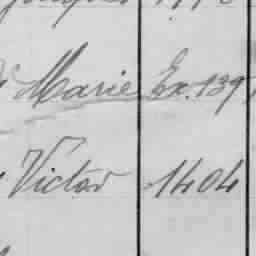 Marie Ex. 139
Victor 1404